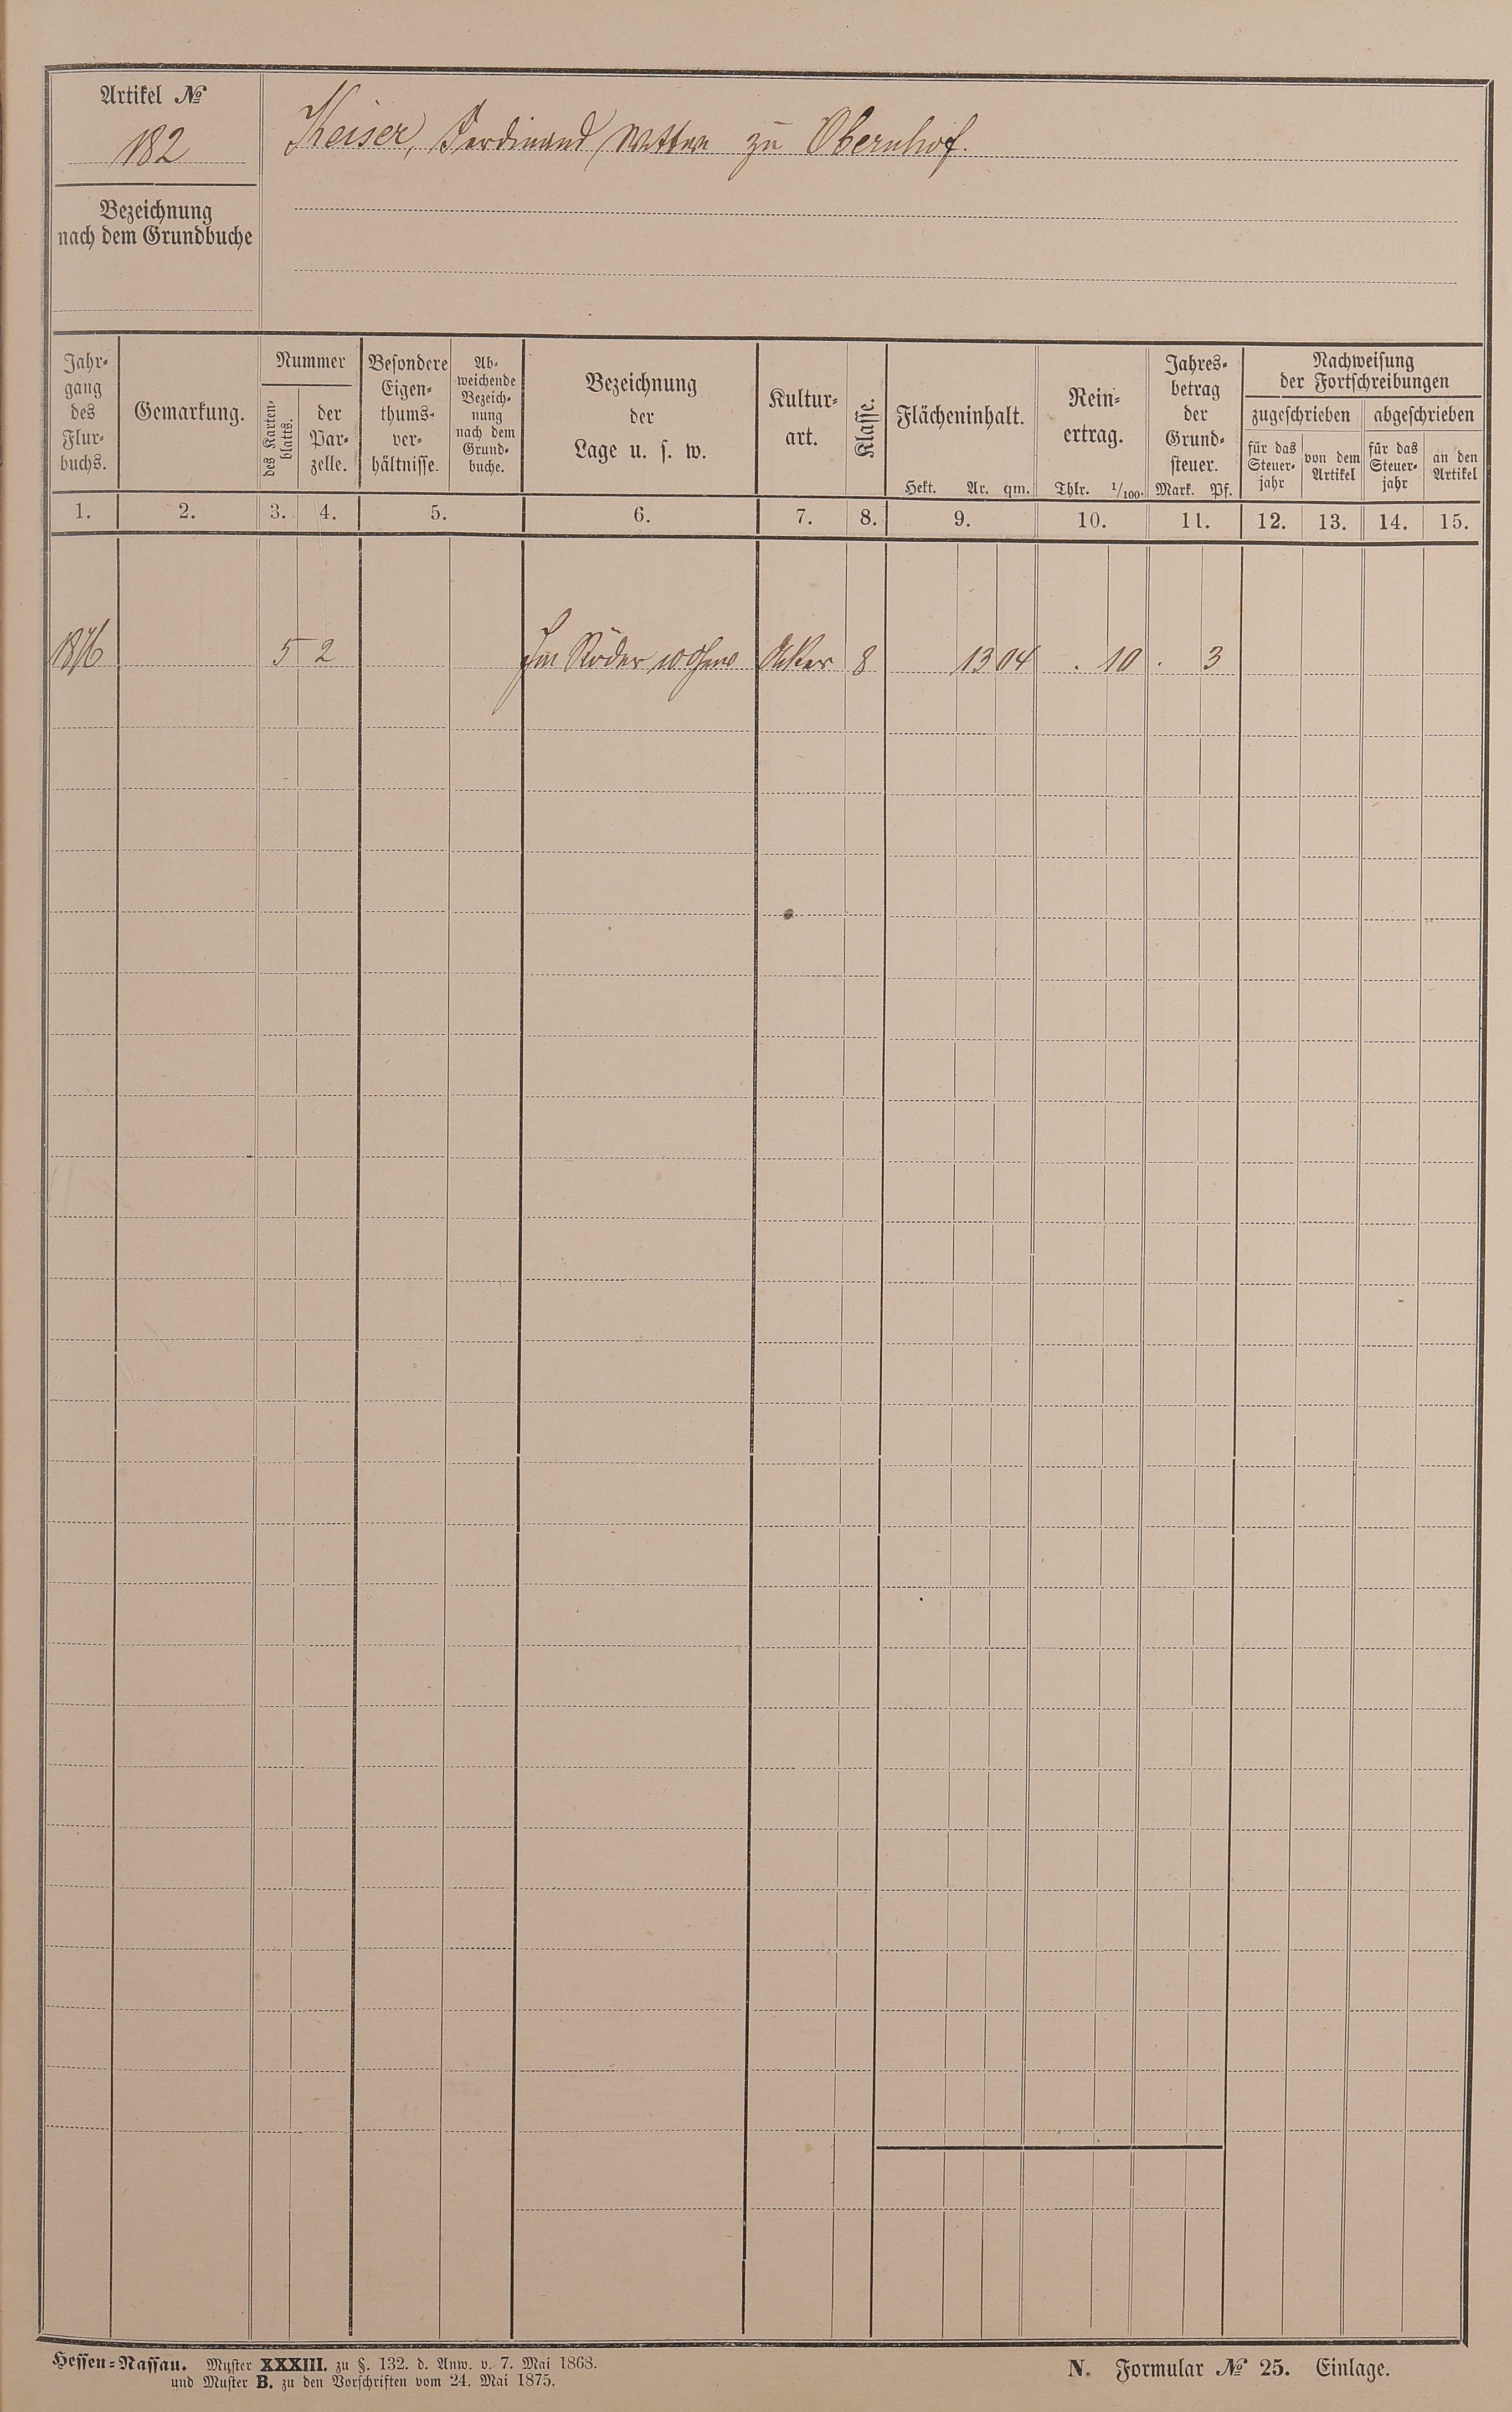 Artikel №
182
Keiser, Ferdinand Wittwe zu Obernhof.
Bezeichnung
nach dem Grundbuche
Jahr-
gang
des
Flur-
buchs.
Gemarkung.
Nummer
des Karten-
blatts.
der
Par-
zelle.
Besondere
Eigen-
thums-
ver-
hältnisse.
Ab-
weichende
Bezeich-
nung
nach dem
Grund-
buche.
Bezeichnung
der
Lage u. s. w.
Kultur-
art.
Klasse.
Flächeninhalt.
Hekt. Ar. qm.
Rein-
ertrag.
Thlr. 1/100.
Jahres-
betrag
der
Grund-
steuer.
Mark. Pf.
Nachweisung
der Fortschreibungen
zugeschrieben
abgeschrieben
für das
Steuer-
jahr
von dem
Artikel
für das
Steuer-
jahr
an den
Artikel
1. 2. 3. 4. 5. 6. 7. 8. 9. 10. 11. 12. 13. 14. 15.
1876 5 2 Im Röder Acker 8 13 04 . 10 . 3
Hessen-Nassau. Muster XXXIII. zu §. 132. d. Anw. v. 7. Mai 1868.
und Muster B. zu den Vorschriften vom 24. Mai 1875.
N. Formular № 25. Einlage.